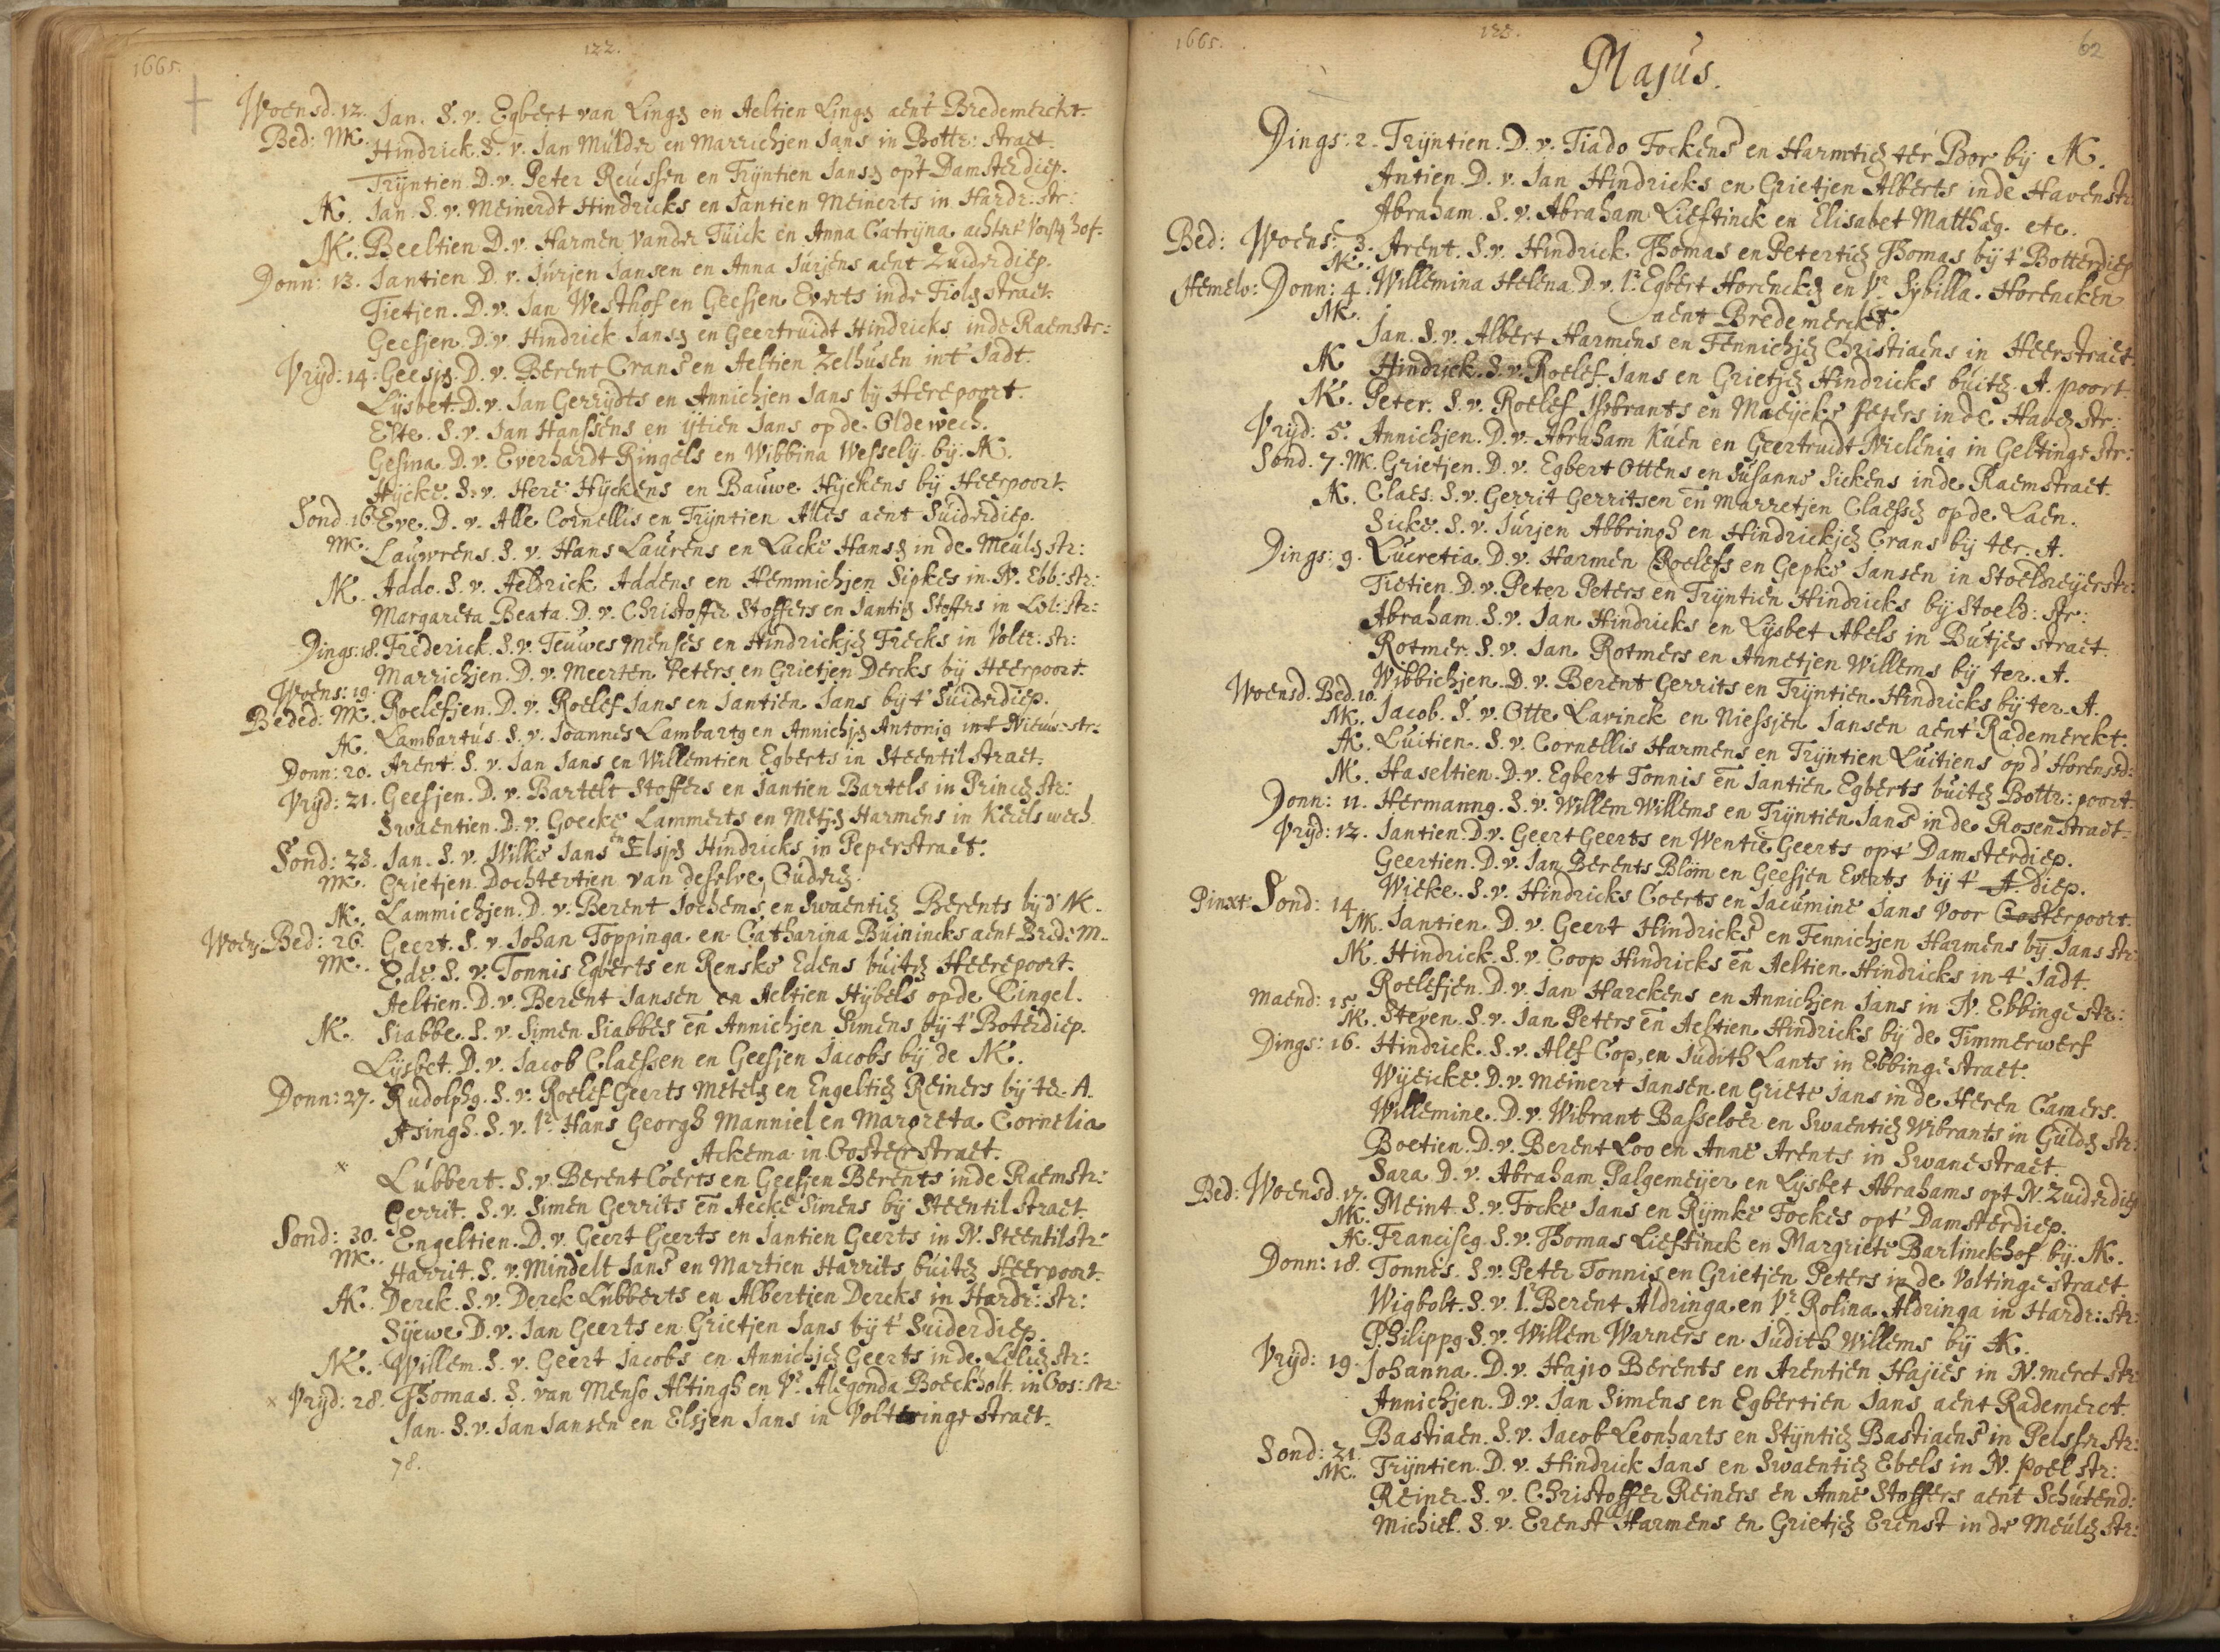 1665. 122.
Woensd. 12. Jan. S. v. Egbert van Ling en Aeltien Ling aent Bredemerckt.
Bed: MK. Hindrick. S. v. Jan Mulder en Marrichjen Jans in Bottr: straet.
Trijntien. D. v. Peter Reussen en Trijntien Jans opt Damsterdiep.
AK. Jan. S. v. Meinerdt Hindricks en Jantien Meinerts in Hardr: str:
NK. Beeltien D. v. Harmen vander Tuick en Anna Catrijna achtert hof.
Donn: 13. Jantien D. v. Jurjen Jansen en Anna Jurjens aent Zuiderdiep.
Tietjen. D. v. Jan Westhof en Geesjen Everts inde Fiolen straet.
Geesjen. D. v. Hindrick Jans en Geertruidt Hindricks inde Raemstr:
Vrijd: 14. Geesjen. D. v. Berent Crans en Aeltien Zelhusen int Jadt.
Lijsbet. D. v. Jan Gerrijdts en Annichjen Jans bij Herepoort.
Elte. S. v. Jan Hanssens en ijtien Jans op de Oldewech.
Gesina. D. v. Everhardt Ringels en Wibbina Wesselij. bij. AK.
Hijcke. S. v. Here Hijckens en Bauwe Hijckens bij Heerpoort.
Sond. 16 Eve. D. v. Alle Cornellis en Trijntien Alles aent Suiderdiep.
MK. Lauwrens. S. v. Hans Laurens en Lucke Hans in de Meulen str:
NK. Addo. S. v. Aeldrick Addens en Hemmichjen Sipkes in N. Ebb: str:
Margareta Beata. D. v. Christoffer Stoffers en Jantien Stoffers in Lel: str:
Dings: 18. Frederick. S. v. Teuwes Menses en Hindrickjen Frecks in Voltr: str:
Marrichjen. D. v. Meerten Peters en Grietjen Dercks bij Heerpoort.
Woens: 19.
Beded: MK. Roelefjen. D. v. Roelef Jans en Jantien Jans bij t' Suiderdiep.
AK. Lambartus. S. v. Joannes Lambartg en Annichjen Antonig int Nieuw-str:
Donn: 20. Arent. S. v. Jan Jans en Willemtien Egberts in Steentil straet.
Vrijd: 21. Geesjen. D. v. Bartelt Stoffers en Jantien Bartels in Princen str:
Swaentien. D. v. Goecke Lammerts en Metjen Harmens in Kreels wech
Sond: 23. Jan. S. v. Wilke Jans en Elsjen Hindricks in Peperstraet.
MK. Grietjen. Dochtertien van deselve Ouders.
NK. Lammichjen. D. v. Berent Jochems en Swaentien Berents bij d' NK.
Woens Bed: 26. Geert. S. v. Johan Toppinga en Catharina Buinincks aent Brede M.
MK. Ede. S. v. Tonnis Egberts en Renske Edens buiten Heerepoort.
Aeltien. D. v. Berent Jansen en Aeltien Hijbels op de Cingel.
NK. Siabbe. S. v. Simen Siabbes en Annichjen Simens bij t' Boterdiep.
Lijsbet. D. v. Jacob Claessen en Geesjen Jacobs bij de NK.
Donn: 27. Rudolphg. S. v. Roelef Geerts Metels en Engeltien Reiners bij te. A.
Asingh. S. v. Hans Georgh Manniel en Margreta Cornelia
Ackema in Ooster straet.
x Lubbert. S. v. Berent Coerts en Geesjen Berents inde Raemstr:
Gerrit. S. v. Simen Gerrits en Aecke Simens bij Steentil straet.
Sond: 30. Engeltien. D. v. Geert Geerts en Jantien Geerts in N. Steentilstr:
MK. Harrit. S. v. Mindelt Jans en Martien Harrits buiten Heerpoort.
AK. Derck. S. v. Derck Lubberts en Albertien Dercks in Hardr: str:
Sijewe D. v. Jan Geerts en Grietjen Jans bij t' Suiderdiep.
NK. Willem. S. v. Geert Jacobs en Annichjen Geerts in de Lelien str:
x Vrijd: 28. Thomas. S. van Menso Altingh en Vr. Alegonda Boeckholt. in Oos: str:
Jan. S. v. Jan Jansen en Elsjen Jans in Volteringe straet.
78.
1665. 123. 62
Majus.
Dings: 2. Trijntien. D. v. Tiado Fockens en Harmtien ter Bor bij NK.
Antien. D. v. Jan Hindricks en Grietjen Alberts inde Havenstr:
Abraham. S. v. Abraham Lieftinck en Elisabet Matthaeg. etc.
Bed: Woens: 3. Arent. S. v. Hindrick Thomas en Petertien Thomas bij t' Botterdiep
NK.
Hemelv: Donn: 4. Willemina Helena D. v. Egbert Horencken en Vr. Sijbilla. Horencken
aent Bredemerckt.
MK. Jan. S. v. Albert Harmens en Fennichjen Christiaens in Heerstraet.
AK Hindrick. S. v. Roelef Jans en Grietjen Hindricks buiten. A. poort.
NK. Peter. S. v. Roelef Isbrants en Maeijcke Peters inde Haven str:
Vrijd: 5. Annichjen. D. v. Abraham Kuen en Geertruidt Wielenig in Geltinge str:
Sond. 7. MK. Grietjen. D. v. Egbert Ottens en Susanne Sickens inde Raemstraet.
AK. Claes. S. v. Gerrit Gerritsen en Marretjen Claessen op de Laen.
Sicke. S. v. Jurjen Abbringh en Hindrickjen Crans bij ter. A.
Dings: 9. Lucretia D. v. Harmen Roelefs en Gepke Jansen in Stoeldreijerstr:
Tietien. D. v. Peter Peters en Trijntien Hindricks bij Stoeld: str:
Abraham. S. v. Jan Hindricks en Lijsbet Abels in Butjes straet.
Rotmer. S. v. Jan Rotmers en Annetjen Willems bij ter. A.
Wibbichjen. D. v. Berent Gerrits en Trijntien Hindricks bij ter. A.
Woensd. Bed. 10.
MK. Jacob. S. v. Otte Lavinck en Niessjen Jansen aent Rademerckt.
AK. Luitien. S. v. Cornellis Harmens en Trijntien Luitiens op d' Horensd:
NK. Haseltien. D. v. Egbert Tonnis en Jantien Egberts buiten Bottr: poort.
Donn: 11. Hermanng. S. v. Willem Willems en Trijntien Jans in de Rosenstraet.
Vrijd: 12. Jantien. D. v. Geert Geerts en Wentie Geerts opt' Damsterdiep.
Geertien. D. v. Jan Berents Blom en Geesjen Everts bij t' A. diep.
Wieke. S. v. Hindricks Coerts en Jacumine Jans voor Oosterpoort.
Pinxt: Sond: 14
MK. Jantien. D. v. Geert Hindricks en Fennichjen Harmens bij Jans str:
NK. Hindrick. S. v. Coop Hindricks en Aeltien Hindricks in t' Jadt.
Roelefjen. D. v. Jan Harckens en Annichjen Jans in N. Ebbinge str:
Maend: 15.
NK. Steven. S. v. Jan Peters en Aeltien Hindricks bij de Timmerwerf
Dings: 16. Hindrick. S. v. Alef Cop, en Judith Lants in Ebbinge straet.
Wijeicke. D. v. Meinert Jansen en Griete Jans in de Heren Camers.
Willemine. D. v. Wibrant Basseloer en Swaentien Wibrants in Gulden str:
Boetien. D. v. Berent Loo en Anne Arents in Swanestraet.
Sara. D. v. Abraham Palgemeijer en Lijsbet Abrahams opt N. Zuiderdiep
Bed: Woensd. 17. Meint. S. v. Focke Jans en Rijmke Fockes opt' Damsterdiep.
MK.
AK. Franciscg. S. v. Thomas Lieftinck en Margriete Barlinckhof bij. NK.
Donn: 18. Tonnes. S. v. Peter Tonnis en Grietjen Peters in de Voltinge straet.
Wigbolt. S. v. Berent Aldringa en Vr. Rolina Aldringa in Hardr: str:
Philippg. S. v. Willem Warners en Judith Willems bij AK.
Vrijd: 19. Johanna. D. v. Hajio Berents en Arentien Hajies in N. merct str:
Annichjen. D. v. Jan Simens en Egbertien Jans aent Rademerct.
Bastiaen. S. v. Jacob Leonharts en Stijntien Bastiaens in Pelser str:
Sond: 21.
NK. Trijntien. D. v. Hindrick Jans en Swaentien Ebels in N. Poel str:
Reiner. S. v. Christoffer Reiners en Anne Stoffers aent Schutend:
Michiel. S. v. Erenst Harmens en Grietjen Erenst in de Meulen str: